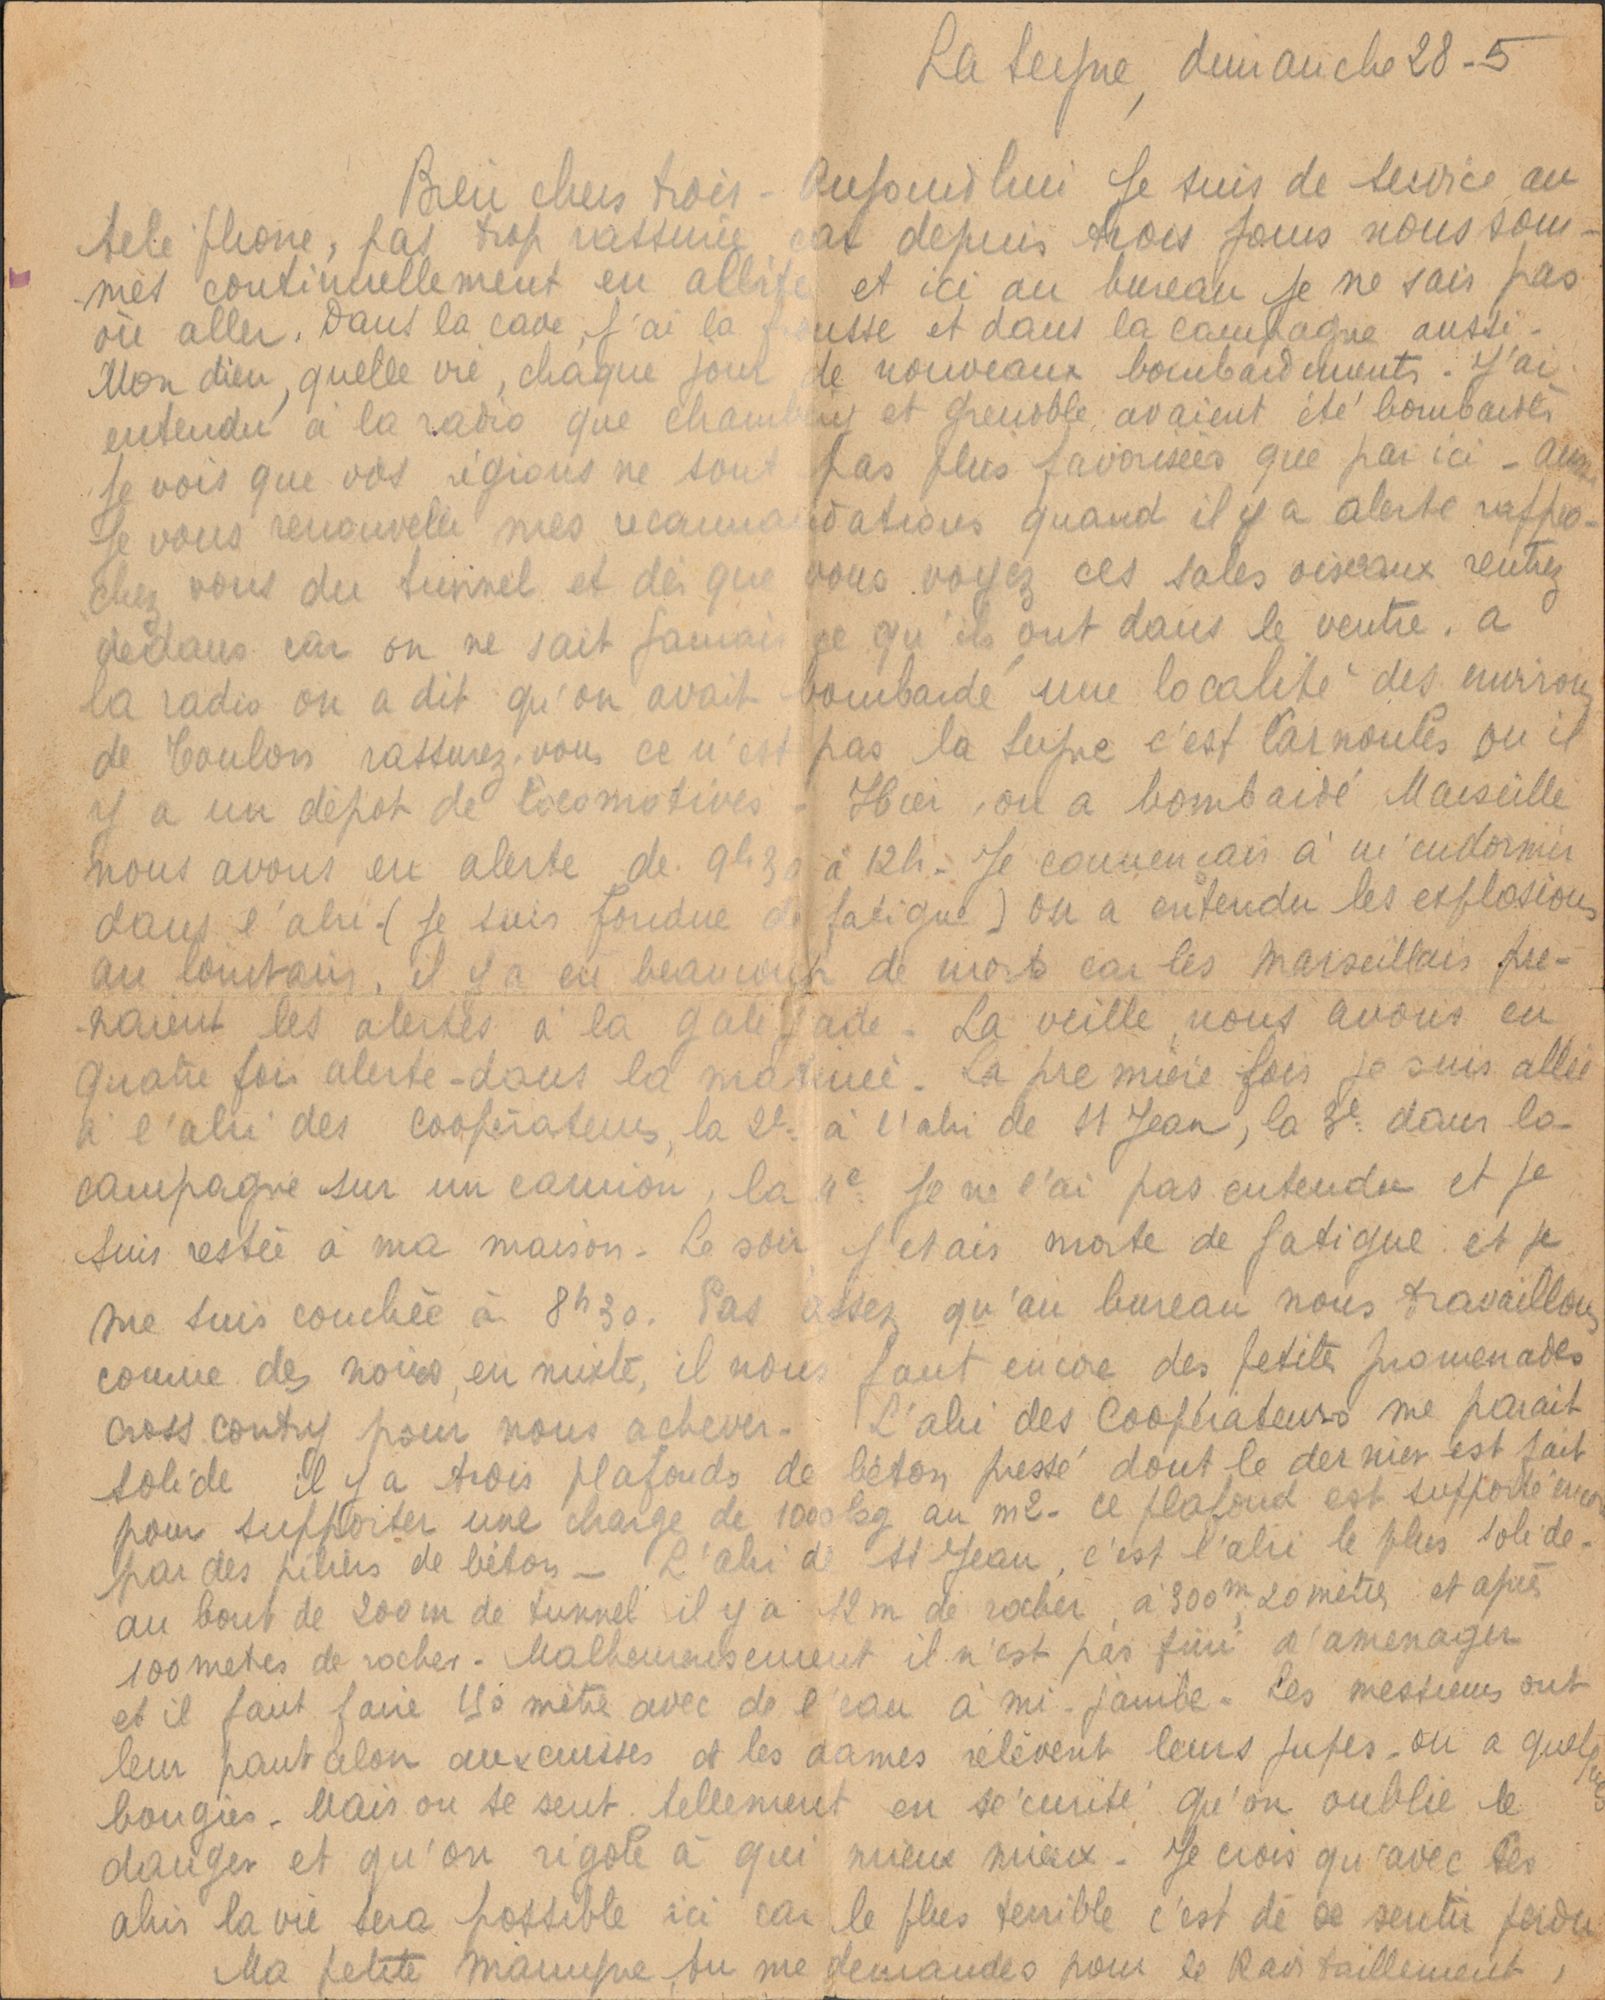 La Seyne, dimanche 28-5
Bien chers trois - Aujourd'hui je suis de service au
téléphone, pas trop rassurée car depuis trois jours nous som-
mes continuellement en alerte et ici au bureau je ne sais pas
où aller. Dans la cave, j'ai la frousse et dans la campagne aussi.
Mon dieu, quelle vie, chaque jour de nouveaux bombardements. J'ai
entendu à la radio que Chambéry et Grenoble avaient été bombardés
Je vois que vos régions ne sont pas plus favorisées que par ici - aussi
Je vous renouvelle mes recommandations quand il y a alerte rappro-
chez vous du tunnel et dès que vous voyez ces sales oiseaux rentrez
dedans car on ne sait jamais ce qu'ils ont dans le ventre. a
la radio on a dit qu'on avait bombardé une localité des environs
de Toulon rassurez-vous ce n'est pas la Seyne c'est Carnoules ou il
y a un dépot de locomotives - Hier, on a bombardé Marseille
nous avons eu alerte de 9h30 à 12h - Je commençais à m'endormir
dans l'abri (je suis fondue de fatigue) on a entendu les explosions
au lointain, il y a eu beaucoup de morts car les Marseillais pre-
naient les alertes à la galéjade - La veille, nous avons eu
quatre fois alerte - dans la matinée - La première fois je suis allée
à l'abri des coopérateurs, la 2e à l'abri de St Jean, la 3e dans la
campagne sur un camion, la 4e je ne l'ai pas entendu et je
suis restée à ma maison - Le soir j'etais morte de fatigue et je
me suis couchée à 8h30. Pas assez qu'au bureau nous travaillons
comme des noires, en mixte, il nous faut encore des petites promenades
cross contry pour nous achever - L'abri des Coopérateurs me parait
solide il y a trois plafonds de béton pressé dont le dernier est fait
pour supporter une charge de 1000 kg au m2 - ce plafond est supporté encore
par des piliers de béton - L'abri de St Jean, c'est l'abri le plus solide -
au bout de 200m de tunnel il y a 12m de rocher, à 300m, 20 mètres et après
100 metres de rocher - Malheureusement il n'est pas fini d'aménager
et il faut faire 150 mètres avec de l'eau à mi-jambe - Les messieurs ont
leur pantalon aux cuisses et les dames relèvent leurs jupes - on a quelques
bougies - Mais on se sent tellement en sécurité qu'on oublie le
danger et qu'on rigole à qui mieux mieux - Je crois qu'avec ces
abris la vie sera possible ici car le plus terrible c'est de se sentir perdu
Ma petite mamyne, tu me demandes pour le Ravitaillement,